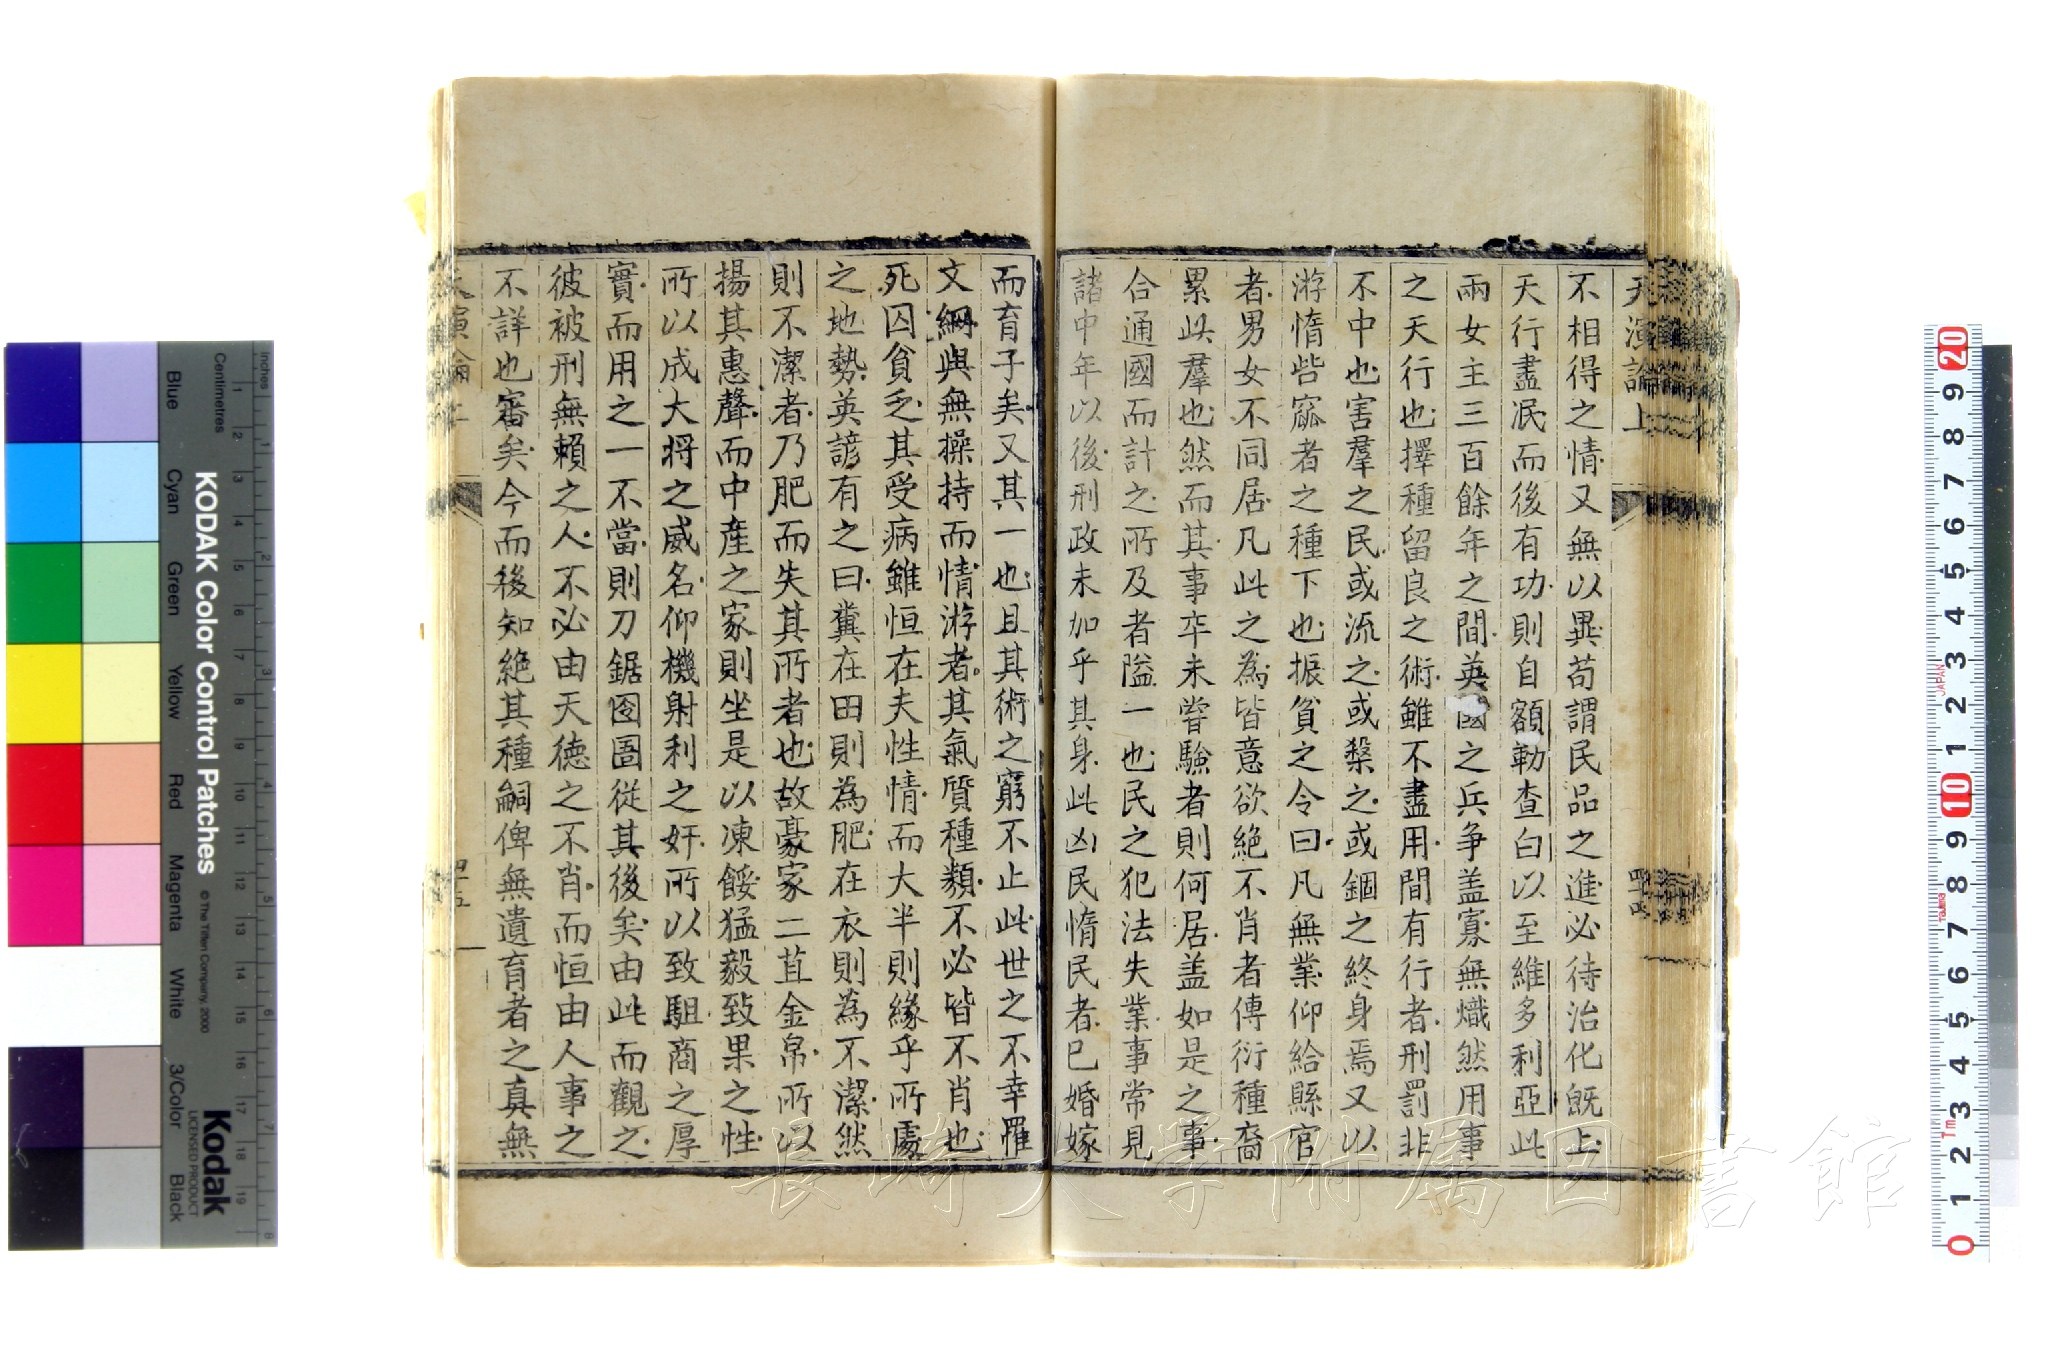 天演論上
不相得之情又無以異苟謂民品之進必待治化既上
天行盡泯而後有功則自額勒查白以至維多利亞此
兩女主三百餘年之間英國之兵爭盖寡無熾然用事
之天行也擇種留良之術雖不盡用間有行者刑罰非
不中也害羣之民或流之或殺之或錮之終身焉又以
游惰呰窳者之種下也振貧之令曰凡無業仰給縣官
者男女不同居凡此之為皆意欲絕不肖者傳衍種裔
累此羣也然而其事卒未嘗驗者則何居盖如是之事
合通國而計之所及者隘一也民之犯法失業事常見
諸中年以後刑政未加乎其身此凶民惰民者已婚嫁
四四
而育子矣又其一也且其術之窮不止此世之不幸罹
文網與無操持而惰游者其氣質種類不必皆不肖也
死囚貧乏其受病雖恒在夫性情而大半則緣乎所處
之地勢英諺有之曰糞在田則為肥在衣則為不潔然
則不潔者乃肥而失其所者也故豪家二苴金帛所以
揚其惠聲而中產之家則坐是以凍餒猛毅致果之性
所以成大將之威名仰機射利之奸所以致駔商之厚
實而用之一不當則刀鋸囹圄從其後矣由此而觀之
彼被刑無賴之人不必由天德之不肖而恒由人事之
不詳也審矣今而後知絕其種嗣俾無遺育者之真無
天演論上
四五
長崎大学附属図書館
KODAK Color Control Patches
© The Tiffen Company, 2000
Kodak
LICENSED PRODUCT
Inches
Centimetres
Blue
Cyan
Green
Yellow
Red
Magenta
White
3/Color
Black
1 2 3 4 5 6 7 8 9 10 11 12 13 14 15 16 17 18 19
1 2 3 4 5 6 7 8
20 9 8 7 6 5 4 3 2 1 10 9 8 7 6 5 4 3 2 1 0
JAPAN